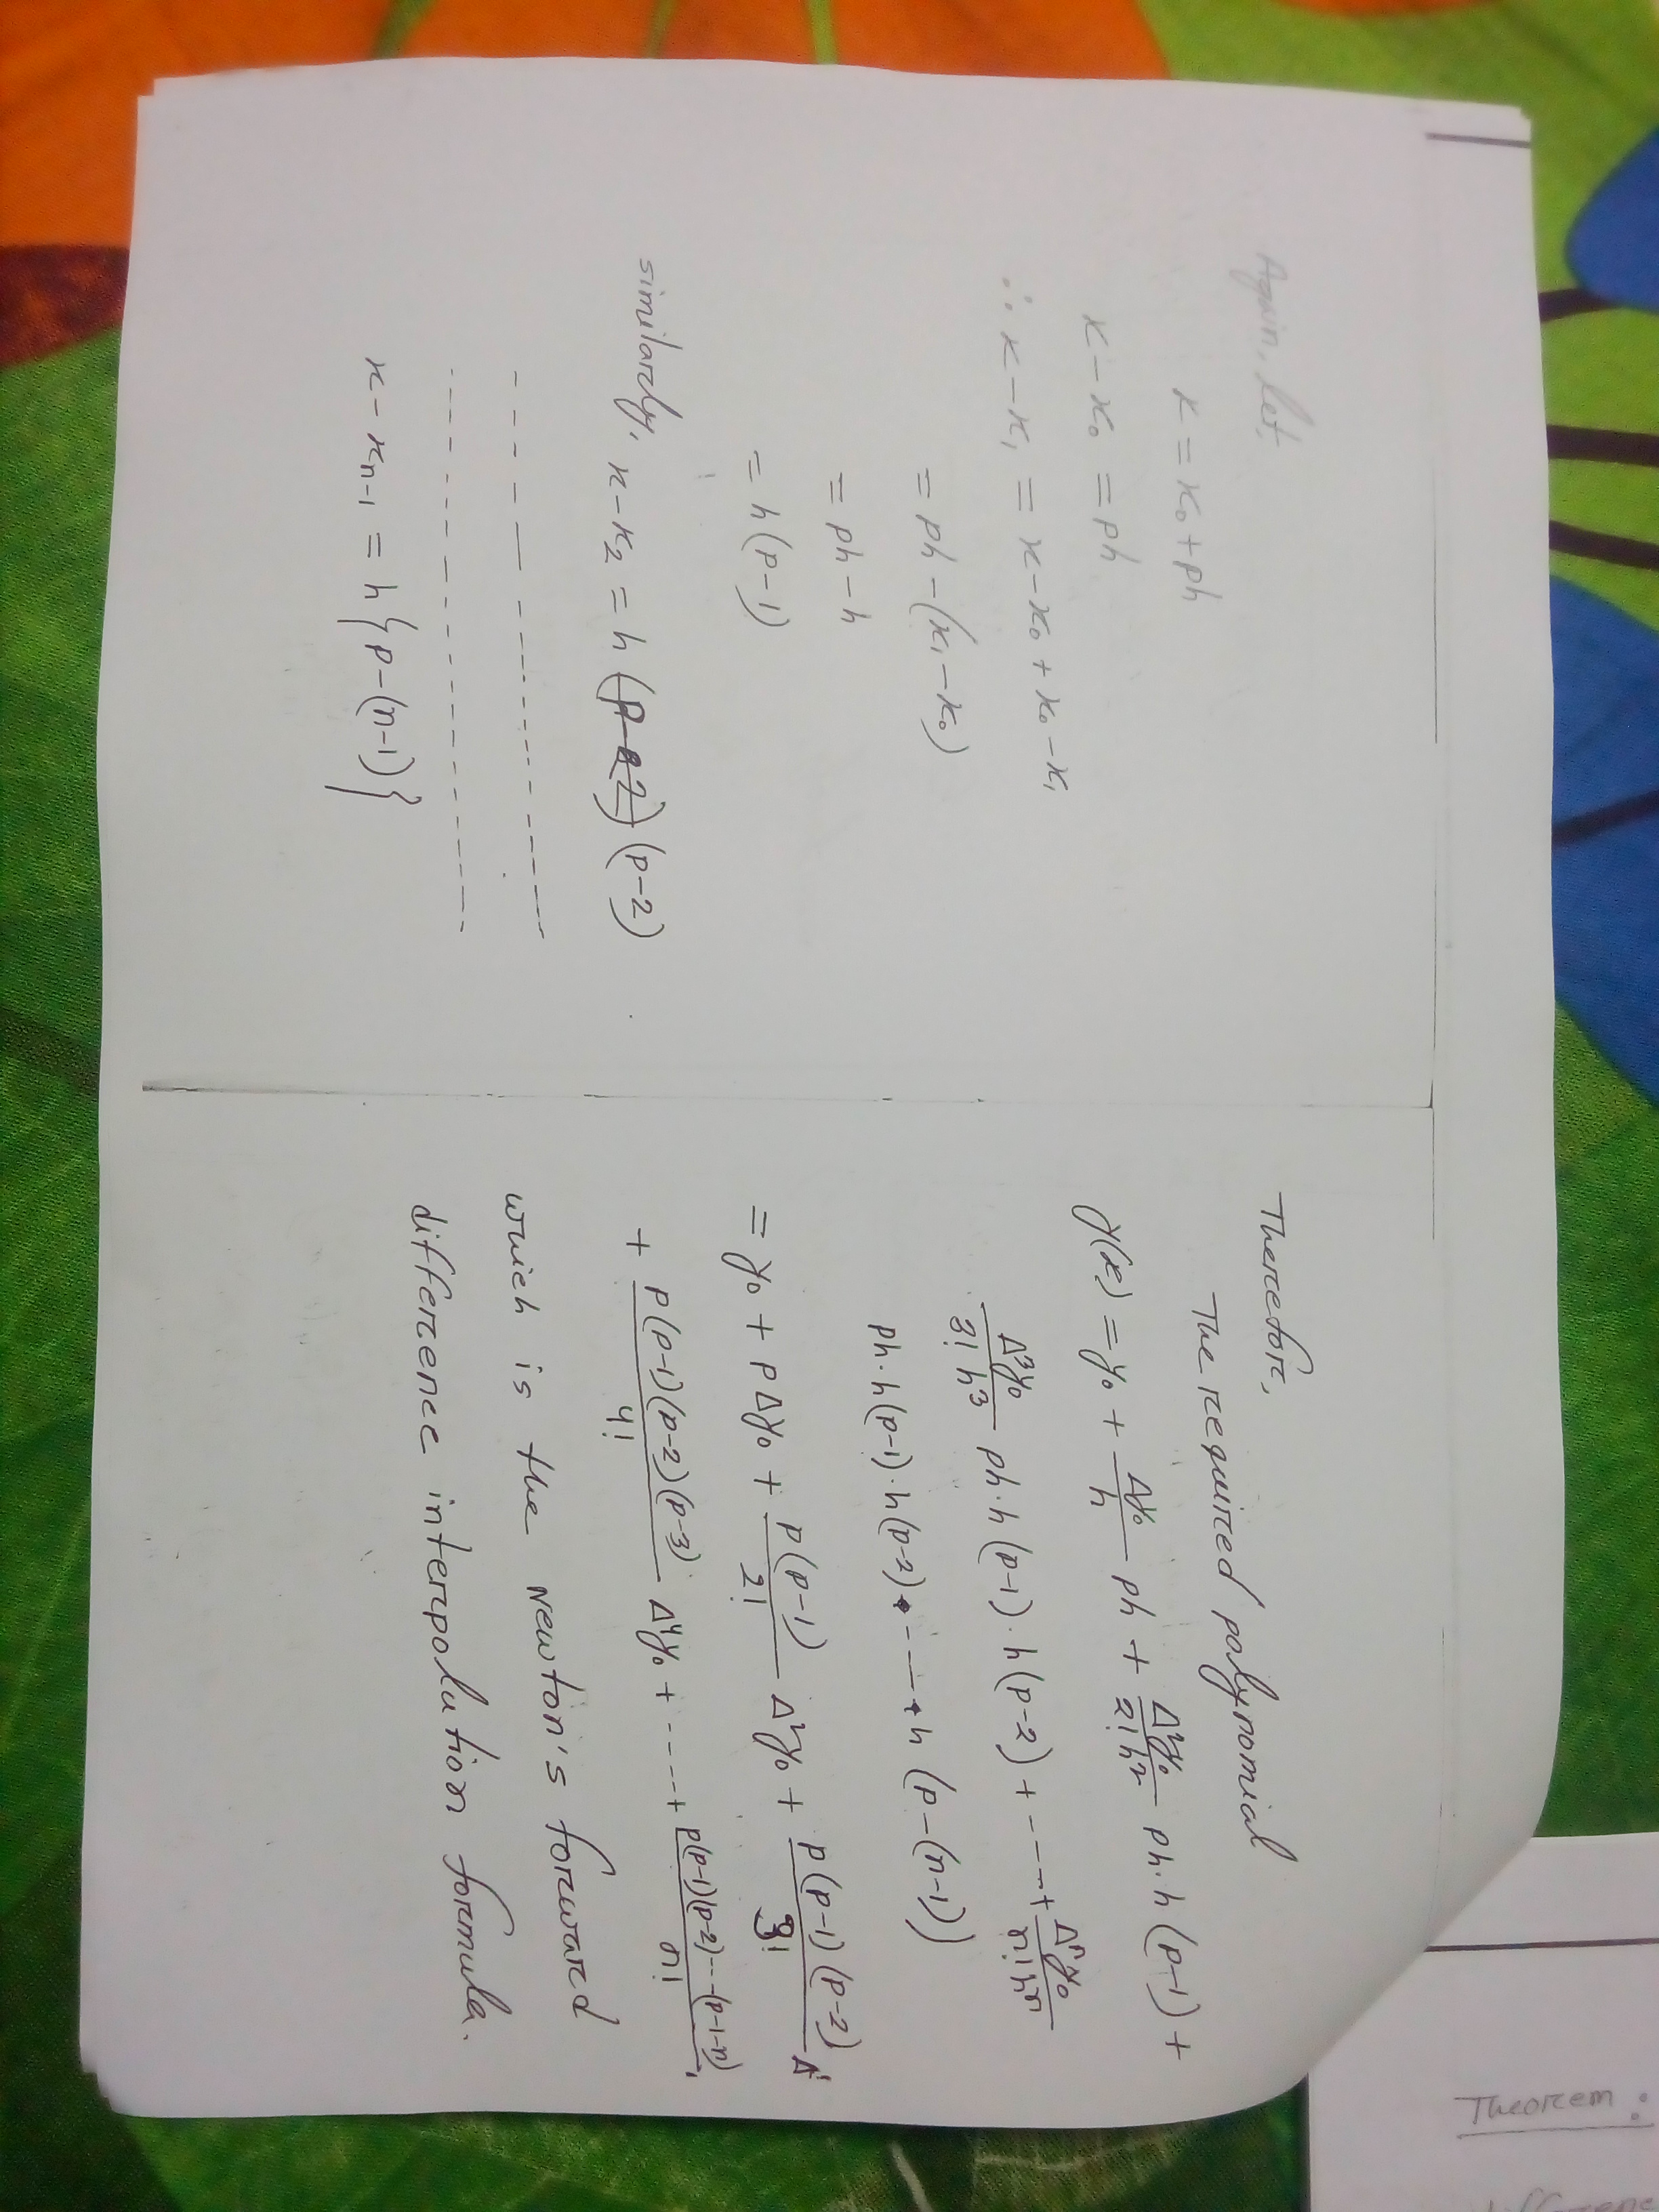 Again, let,
x = x₀ + ph
x – x₀ = ph
∴ x – x₁ = x – x₀ + x₀ – x₁
= ph – (x₁ – x₀)
= ph – h
= h(p–1)
similarly, x – x₂ = h (p–2)
x – xₙ₋₁ = h{p–(n–1)}
Therefor,
The required polynomial
y(x) = y₀ + Δy₀/h ph + Δ²y₀/2!h² ph·h (p–1) +
Δ³y₀/3! h³ ph·h (p–1)·h (p–2) + ----+ Δⁿy₀/n!hⁿ
ph·h(p–1)·h(p–2)·----·h (p–(n–1))
= y₀ + pΔy₀ + p(p–1)/2! Δ²y₀ + p(p–1)(p–2)/3! Δ
+ p(p–1)(p–2)(p–3)/4! Δ⁴y₀ + ----+ p(p–1)(p–2)---(p–1–n)/n!
which is the Newton's forward
difference interpolution formula.
Theorem :